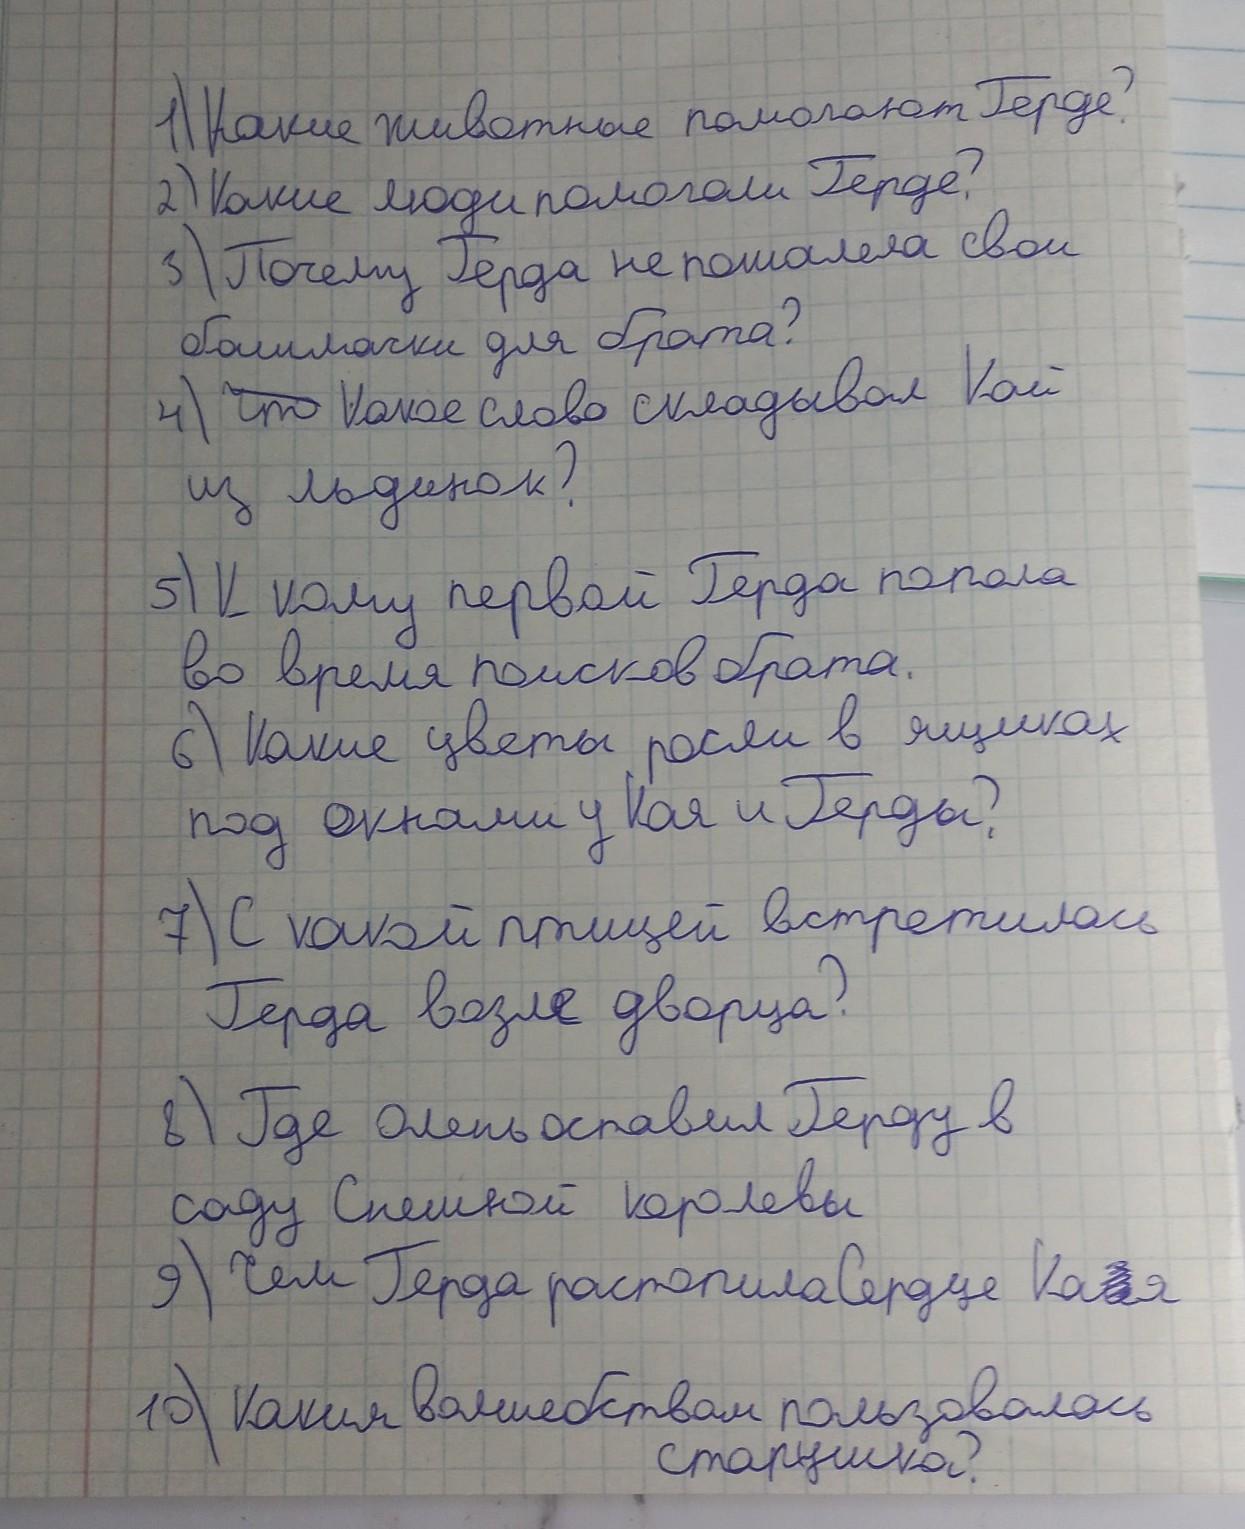 1) Какие животные помогают Герде?
2) Какие люди помогали Герде?
3) Почему Герда не пожалела свои
башмачки для брата?
4) Что Какое слово складывал Кай
из льдинок?
5) К кому первой Герда попала
во время поисков брата.
6) Какие цветы росли в ящиках
под окнами у Кая и Герды?
7) С какой птицей встретилась
Герда возле дворца?
8) Где олень оставил Герду в
саду Снежной королевы
9) Чем Герда растопила Сердце Кая
10) Каким волшебством пользовалась
старушка?